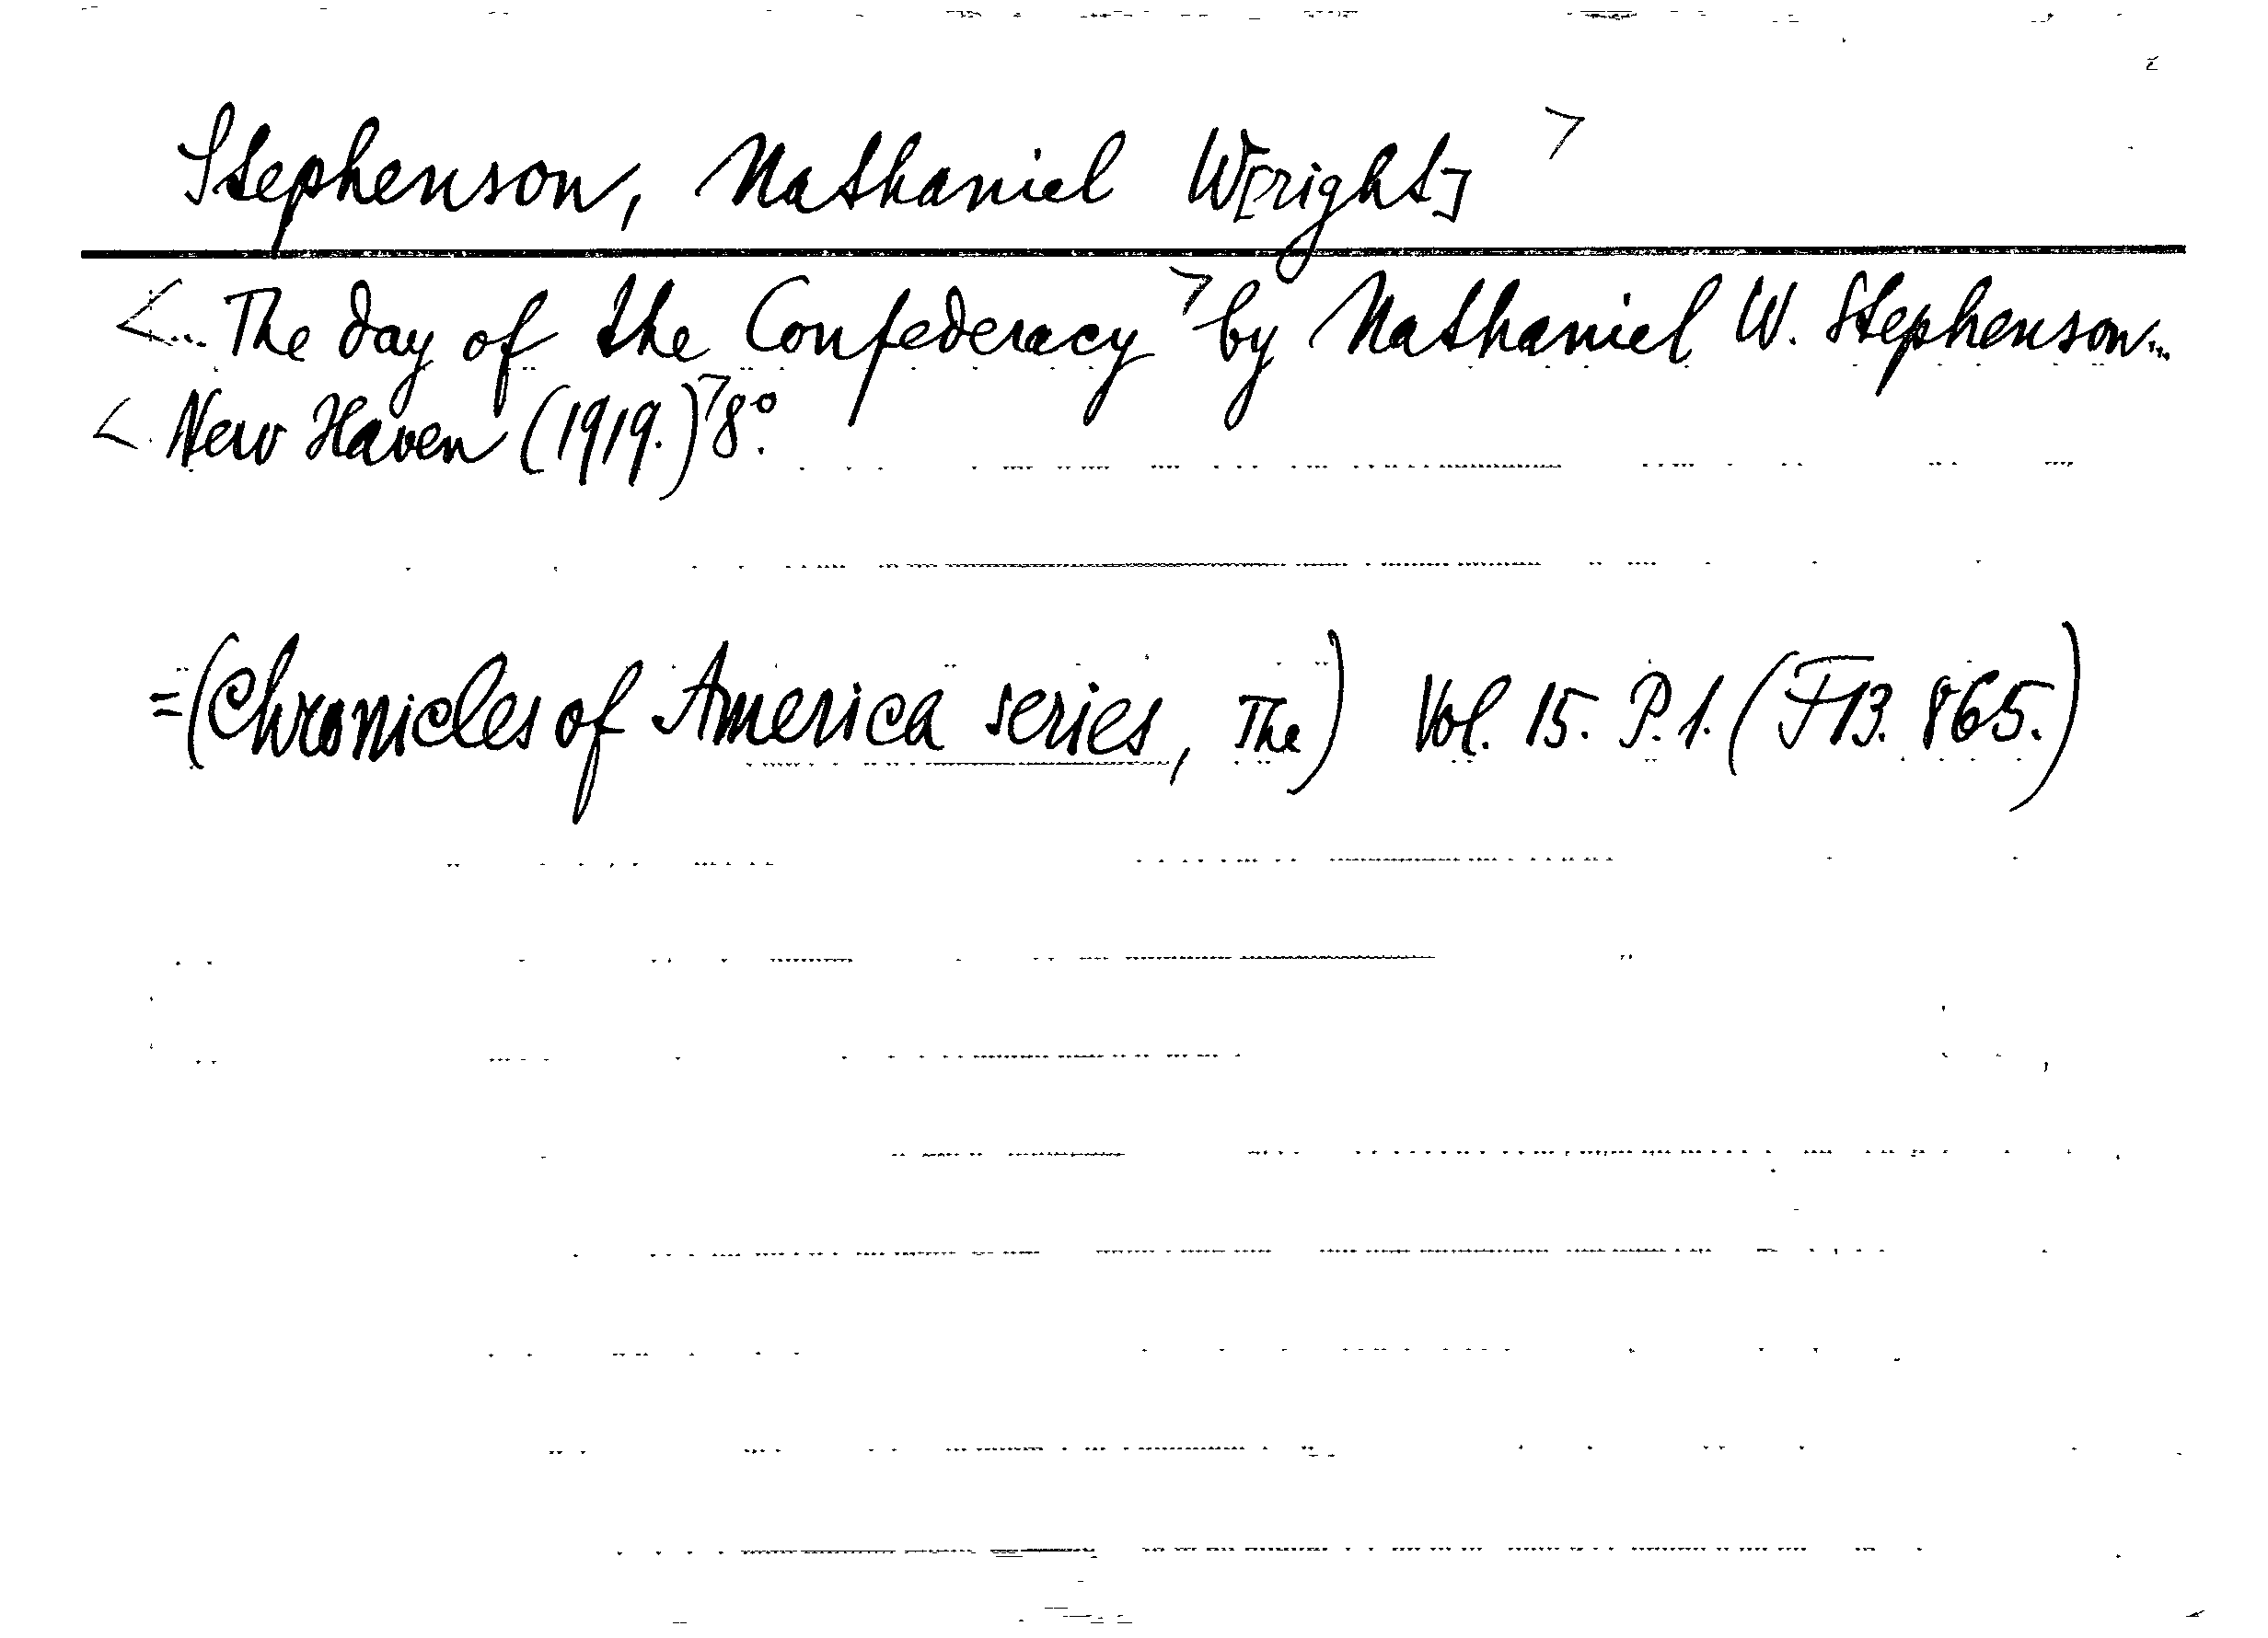 Stephenson, Nathaniel W[right] >
<... The day of the Confederacy > by Nathaniel W. Stephenson...
< New Haven (1919.) > 8°.
=(Chronicles of America series, The) Vol. 15. P. 1. (F13. 865.)